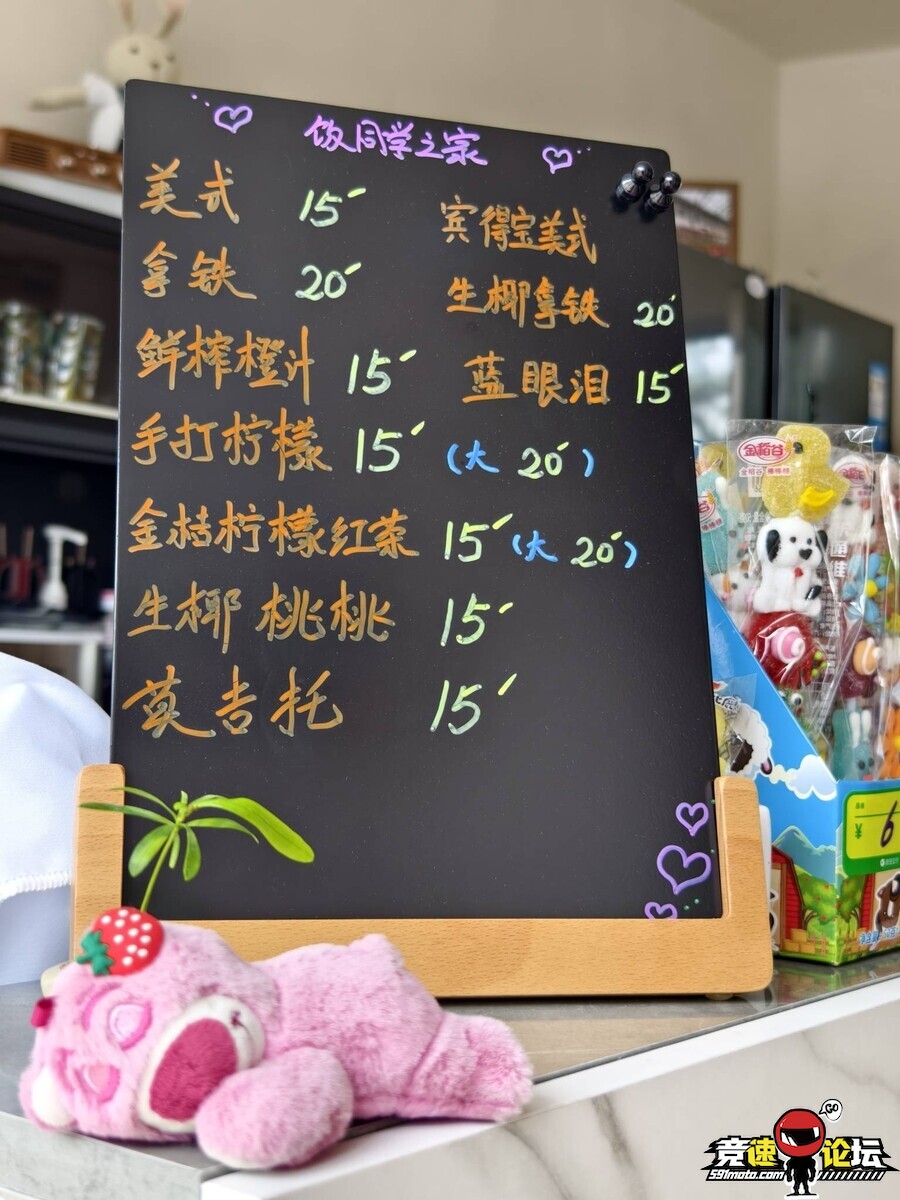 饭同学之家
美式 15
拿铁 20
鲜榨橙汁 15
手打柠檬 15 (大 20)
金桔柠檬红茶 15 (大 20)
生椰桃桃 15
莫吉托 15
宾得宝美式
生椰拿铁 20
蓝眼泪 15
金稻谷
¥ 6
GO
竞速论坛
591moto.com